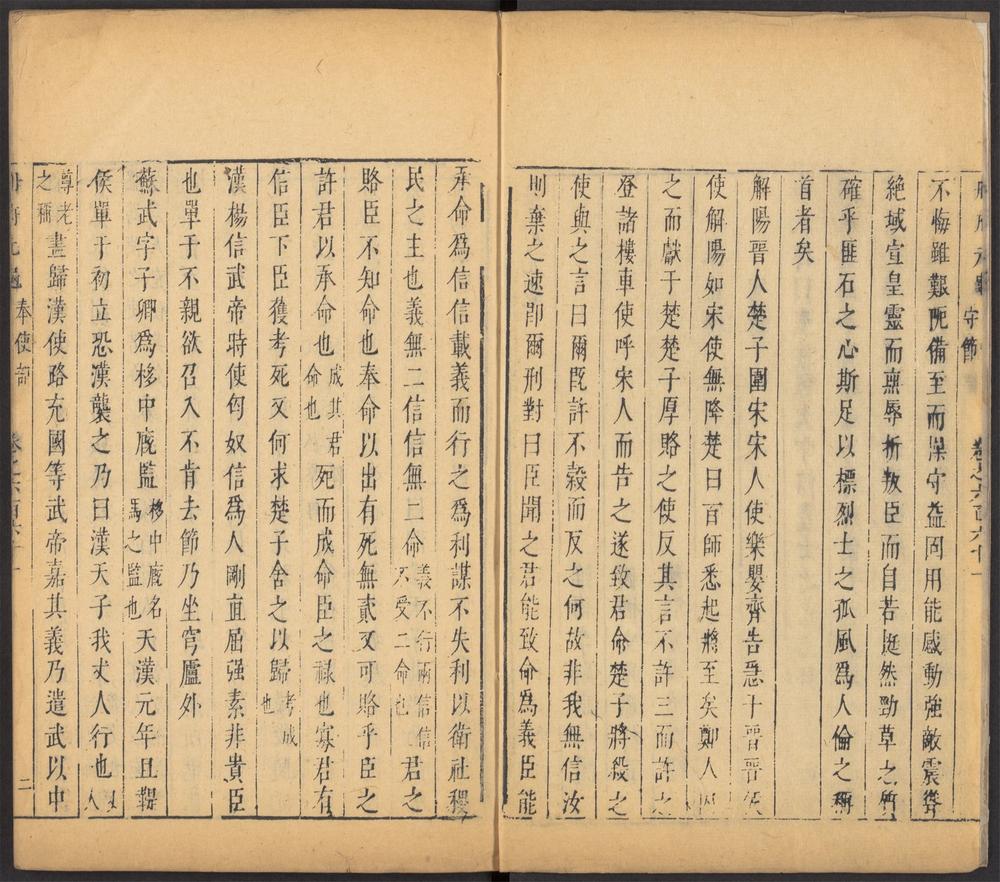 守節
不悔雖艱阨備至而操守益固用能感動強敵震聳
絶域宣皇靈而無辱折叛臣而自若挺然勁草之質
確乎匪石之心斯足以標烈士之孤風爲人倫之稱
首者矣
解陽晋人楚子圍宋宋人使樂嬰齊告急于晋晋侯
使解陽如宋使無降楚曰百師悉起將至矣鄭人囚
之而獻于楚楚子厚賂之使反其言不許三而許之
登諸樓車使呼宋人而告之遂致君命楚子將殺之
使與之言曰爾旣許不穀而反之何故非我無信汝
則棄之速卽爾刑對曰臣聞之君能致命爲義臣能
承命爲信信載義而行之爲利謀不失利以衛社稷
民之主也義無二信信無二命義不行兩信信不受二命也君之
賂臣不知命也奉命以出有死無貳又可賂乎臣之
許君以承命也成其君命也死而成命臣之祿也寡君有
信臣下臣獲考死又何求楚子舍之以歸考成也
漢楊信武帝時使匈奴信爲人剛直屈强素非貴臣
也單于不親欲召入不肯去節乃坐穹廬外
蘇武字子卿爲栘中廐監栘中廐名馬之監也天漢元年且鞮
侯單于初立恐漢襲之乃曰漢天子我丈人行也丈人
尊老之稱盡歸漢使路充國等武帝嘉其義乃遣武以中
奉使部
二